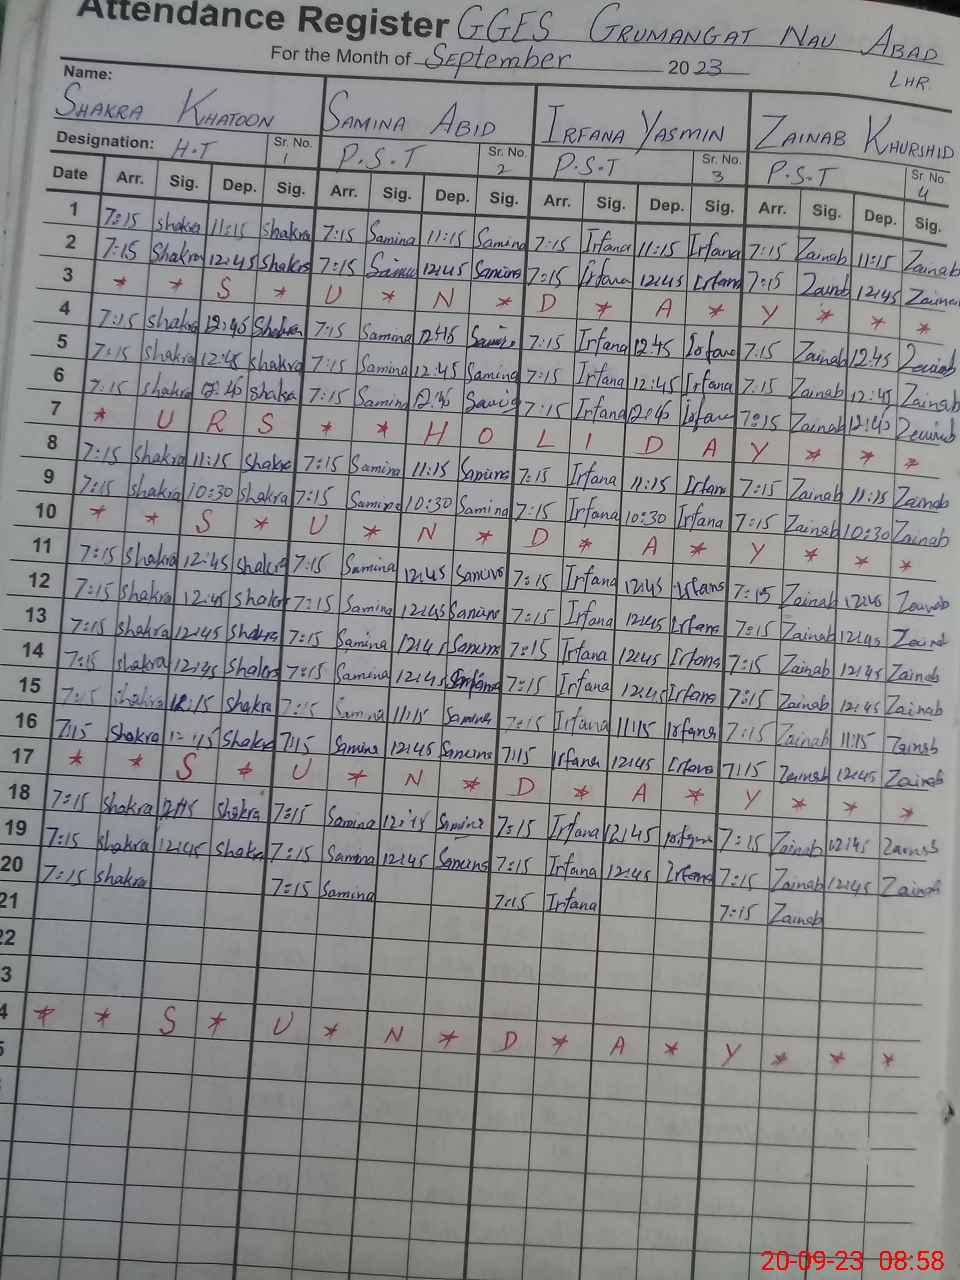 Attendance Register GGES GRUMANGAT NAU ABAD
For the Month of September 2023 LHR
Name:
SHAKRA KHATOON SAMINA ABID IRFANA YASMIN ZAINAB KHURSHID
Designation: H.T Sr. No. 1 P.S.T Sr. No. 2 P.S.T Sr. No. 3 P.S.T Sr. No 4
Date Arr. Sig. Dep. Sig. Arr. Sig. Dep. Sig. Arr. Sig. Dep. Sig. Arr. Sig. Dep. Sig.
1 7:15 Shakra 11:15 Shakra 7:15 Samina 11:15 Samina 7:15 Irfana 11:15 Irfana 7:15 Zainab 11:15 Zainab
2 7:15 Shakra 12:45 Shakra 7:15 12:45 7:15 Irfana 12:45 Irfana 7:15 Zainab 12:45
3 * * S * U * N * D * A * Y * * *
4 7:15 Shakra 12:45 Shakra 7:15 Samina 12:45 7:15 Irfana 12:45 Irfana 7:15 Zainab 12:45
5 7:15 Shakra 12:45 Shakra 7:15 Samina 12:45 Samina 7:15 Irfana 12:45 Irfana 7:15 Zainab 12:45 Zainab
6 7:15 Shakra 12:45 Shakra 7:15 Samina 12:45 7:15 Irfana 12:45 Irfana 7:15 Zainab 12:45
7 * U R S * * H O L I D A Y * * *
8 7:15 Shakra 11:15 Shakra 7:15 Samina 11:15 7:15 Irfana 11:15 Irfana 7:15 Zainab 11:15 Zainab
9 7:15 Shakra 10:30 Shakra 7:15 Samina 10:30 Samina 7:15 Irfana 10:30 Irfana 7:15 Zainab 10:30 Zainab
10 * * S * U * N * D * A * Y * * *
11 7:15 Shakra 12:45 Shakra 7:15 Samina 12:45 7:15 Irfana 12:45 7:15 Zainab 12:45
12 7:15 Shakra 12:45 Shakra 7:15 Samina 12:45 7:15 Irfana 12:45 7:15 Zainab 12:45
13 7:15 Shakra 12:45 Shakra 7:15 Samina 12:45 7:15 Irfana 12:45 7:15 Zainab 12:45 Zainab
14 7:15 Shakra 12:45 Shakra 7:15 Samina 12:45 7:15 Irfana 12:45 7:15 Zainab 12:45 Zainab
15 7:15 Shakra Shakra 7:15 Samina 11:15 Samina 7:15 Irfana 11:15 7:15 Zainab 11:15 Zainab
16 7:15 Shakra Shakra 7:15 Samina 12:45 7:15 Irfana 12:45 7:15 Zainab 12:45 Zainab
17 * * S * U * N * D * A * Y * * *
18 7:15 Shakra Shakra 7:15 Samina Samina 7:15 Irfana 12:45 7:15 Zainab 12:45
19 7:15 Shakra 12:45 Shakra 7:15 Samina 12:45 7:15 Irfana 12:45 7:15 Zainab 12:45 Zainab
20 7:15 Shakra 7:15 Samina 7:15 Irfana 7:15 Zainab
21
22
3
4 * * S * U * N * D * A * Y * * *
5
20-09-23 08:58